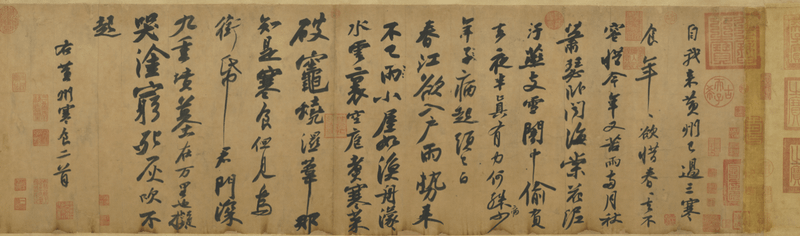 自我來黃州已過三寒
食年々欲惜春春去不
容惜今年又苦雨兩月秋
蕭瑟卧聞海棠花泥
汙燕支雪闇中偷負
去夜半真有力何殊病少
年子病起頭已白
春江欲入戶雨勢來
不已雨小屋如漁舟濛々
水雲裏空庖煮寒菜
破竈燒濕葦那
知是寒食但見烏
銜帋君門深
九重墳墓在万里也擬
哭塗窮死灰吹不
起
右黃州寒食二首